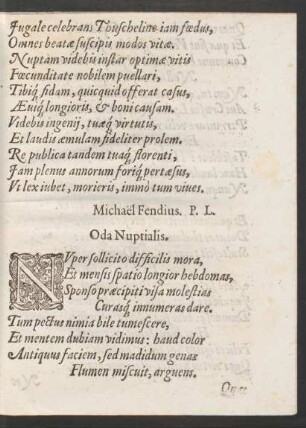 Iugale celebrans Thüscheline iam fœdus,
Omnes beatæ suscipis modos vitæ.
Nuptam videbis instar optimæ vitis
Fœcunditate nobilem puellari,
Tibiq́ fidam, quicquid offerat casus,
Æuiq́ longioris, & boni causam.
Videbis ingenij, tuæq́ virtutis,
Et laudis æmulam fideliter prolem.
Re publica tandem tuaq́ florenti,
Iam plenus annorum foriq́ pertæsus,
Vt lex iubet, morieris, immò tum viues.
Michaël Fendius. P. L.
Oda Nuptialis.
NVper sollicito difficilis mora,
Et mensis spatio longior hebdomas,
Sponso præcipiti visa molestias
Curasq́ innumeras dare.
Tum pectus nimia bile tumescere,
Et mentem dubiam vidimus: haud color
Antiquus faciem, sed madidum genas
Flumen miscuit, arguens.